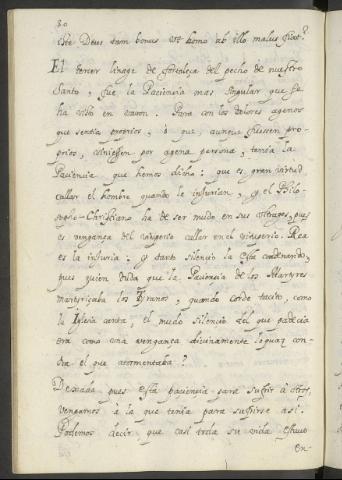 30
iste Deus tam bonus ut homo ab illo malus fiat?
El tercer linage de fortaleza del pecho de nuestro
Santo, fue la Paciencia mas singular que se
ha visto en varon. Para con los dolores agenos
que sentia proprios, ò que, aunque fuessen pro-
prios, viniessen por agena persona, tenia la
Paciencia que hemos dicho: que es gran virtud
callar el hombre quando le injurian, y el Philo
sopho-Christiano ha de ser mudo en sus ultrages, pues
es venganza del vituperio callar en el vituperio. Rea
es la injuria: y tanto silencio la està condenando,
pues quien duda que la Paciencia de los Martyres
martyrizaba los Tyranos, quando corde tacito, como
la Iglesia canta, el mudo silencio del que padecia
era como una venganza divinamente loquaz con-
tra el que atormentaba?
Dexada pues esta paciencia para sufrir à otros,
vengamos à la que tenia para sufrirse à sì.
Podemos decir que casi toda su vida estuvo
en-